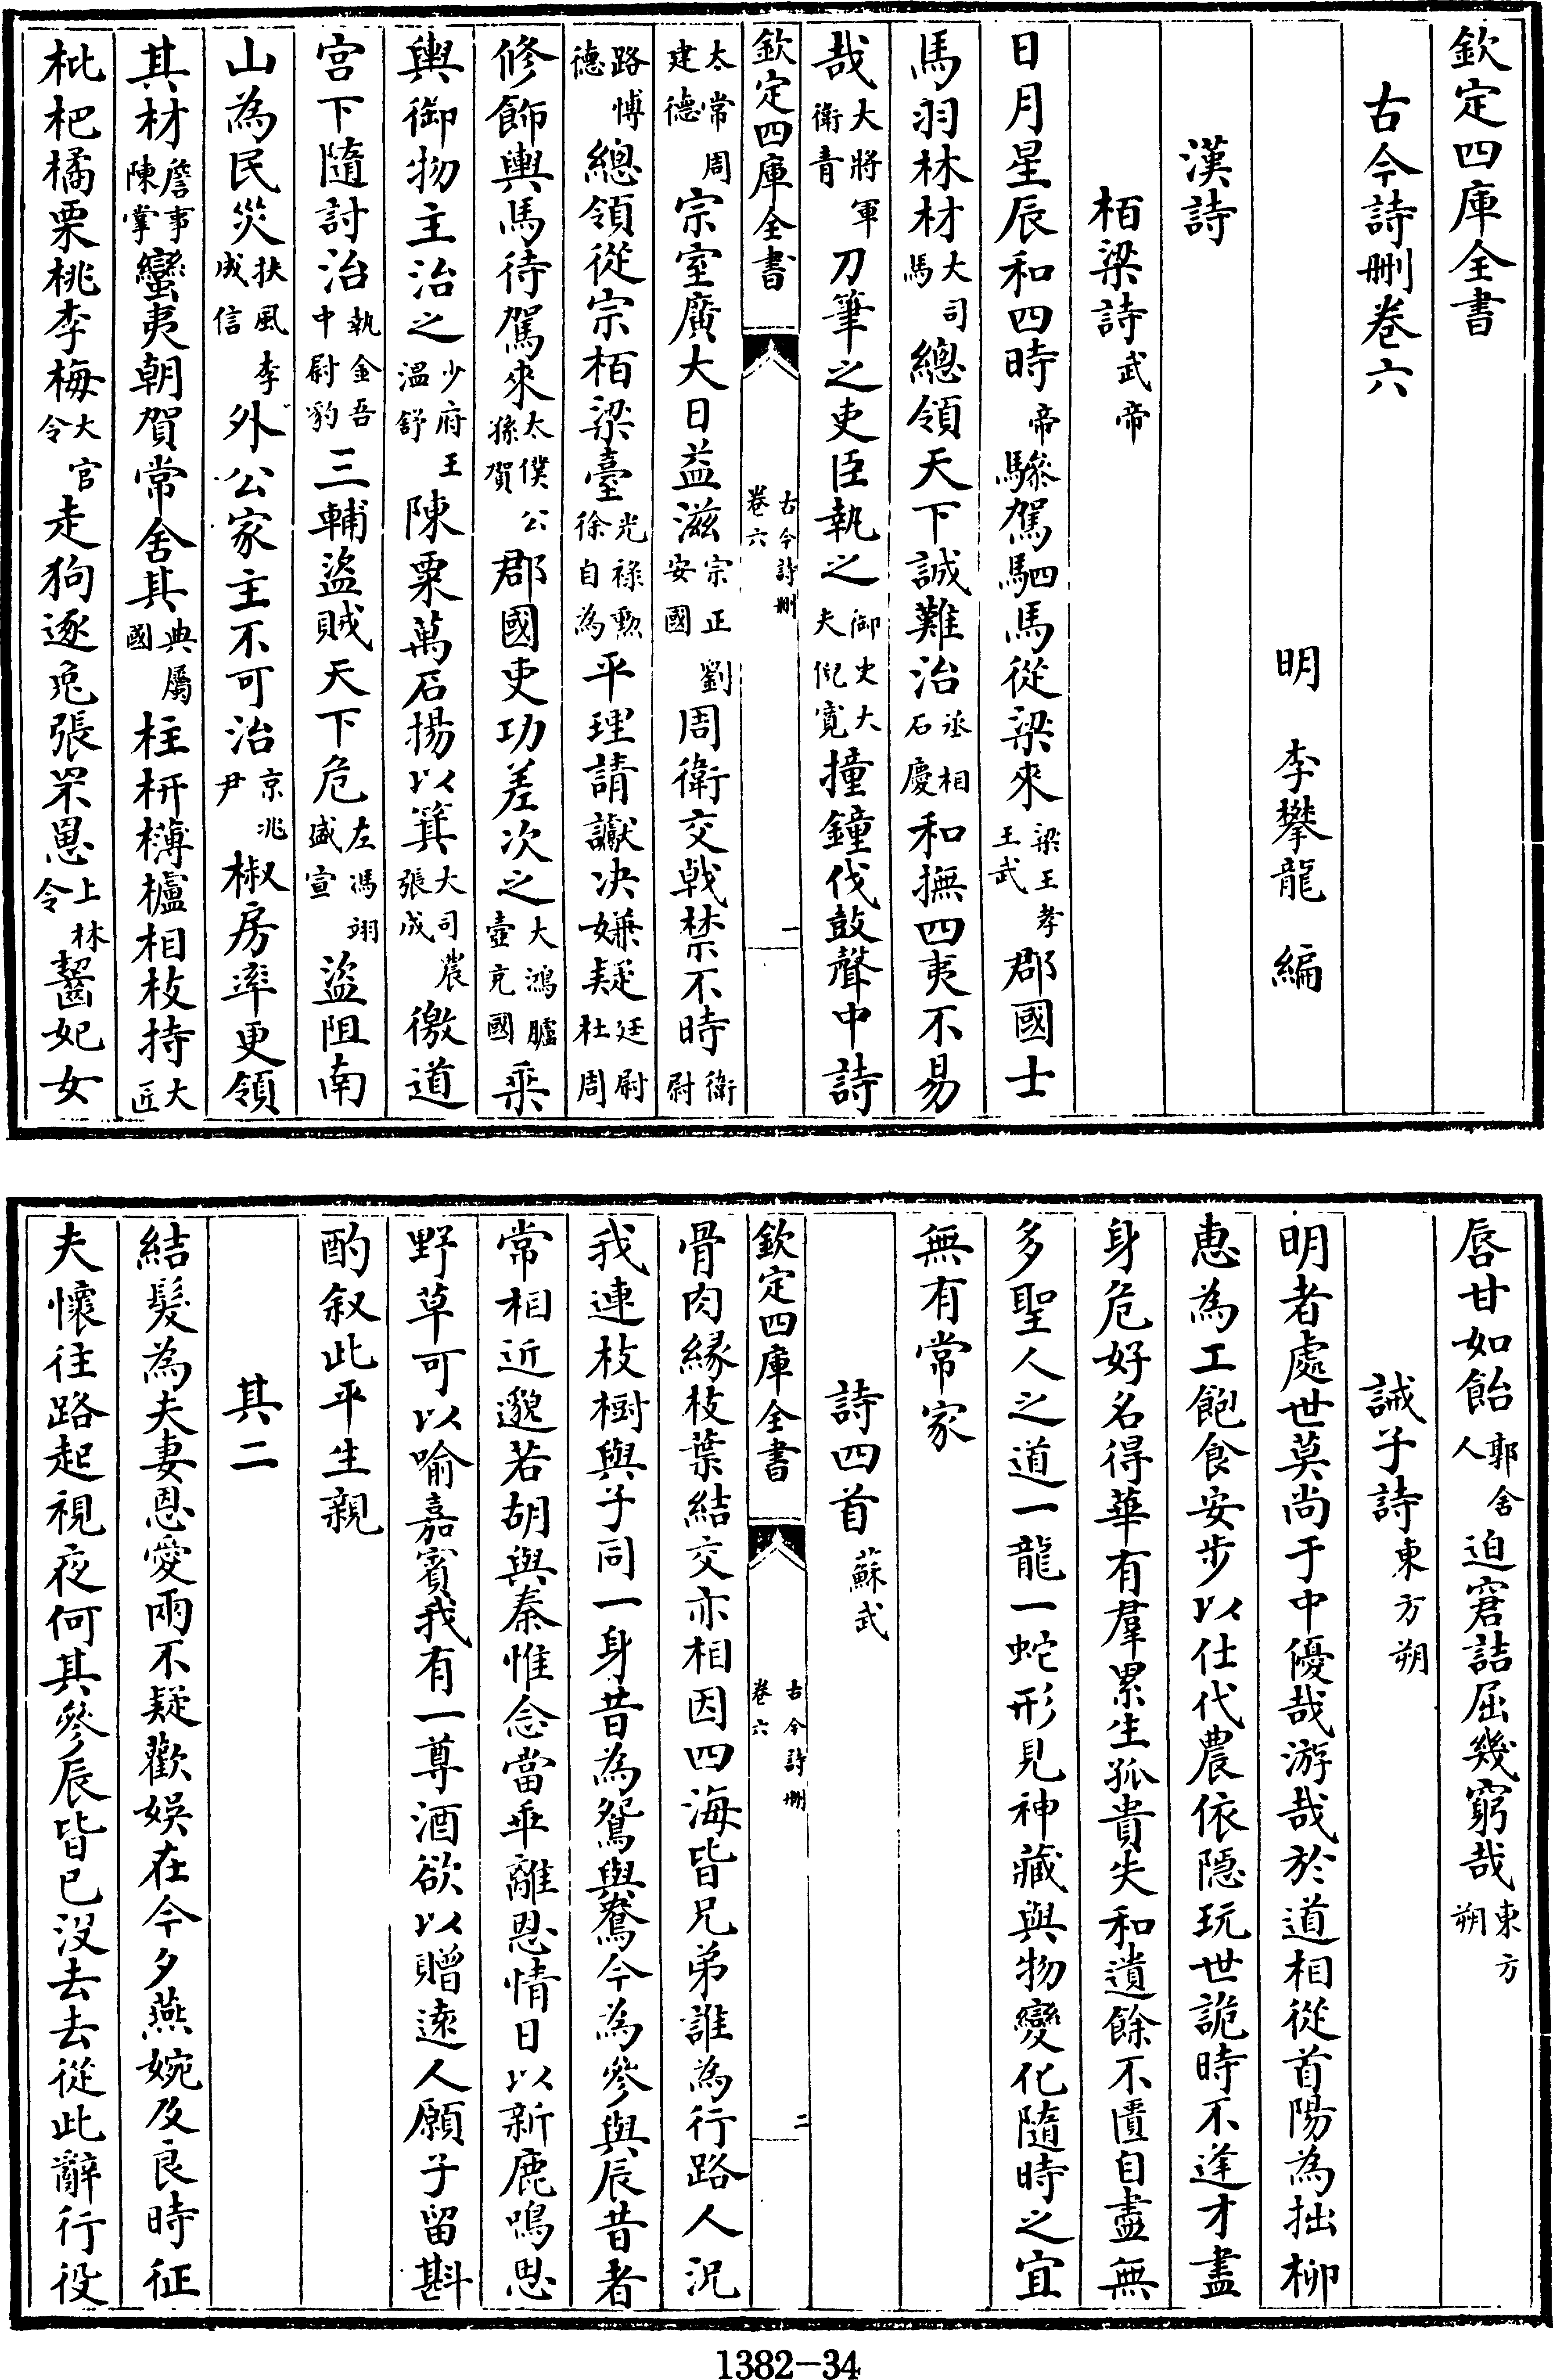 欽定四庫全書
古今詩刪卷六
明　李攀龍　編
漢詩
栢梁詩武帝
日月星辰和四時帝驂駕駟馬從梁來梁王孝王武郡國士
馬羽林材大司馬總領天下誠難治丞相石慶和撫四夷不易
哉大將軍衛青刀筆之吏臣執之御史大夫倪寬撞鐘伐鼓聲中詩
欽定四庫全書　古今詩刪卷六　一
太常周建德宗室廣大日益滋宗正劉安國周衛交戟禁不時衛尉
路博德總領從宗栢梁臺光祿勲徐自為平理請讞決嫌疑廷尉杜周
修飾輿馬待駕來太僕公孫賀郡國吏功差次之大鴻臚壺充國乘
輿御物主治之少府王溫舒陳粟萬石揚以箕大司農張成徼道
宫下隨討治執金吾中尉豹三輔盜賊天下危左馮翊盛宣盜阻南
山為民災扶風李成信外公家主不可治京兆尹椒房率更領
其材詹事陳掌蠻夷朝賀常舍其典屬國柱枅欂櫨相枝持大匠
枇杷橘栗桃李梅大官令走狗逐兔張罘罳上林令齧妃女
唇甘如飴郭舍人迫窘詰屈幾窮哉東方朔
誡子詩東方朔
明者處世莫尚于中優哉游哉於道相從首陽為拙柳
惠為工飽食安步以仕代農依隱玩世詭時不逢才盡
身危好名得華有羣累生孤貴失和遺餘不匱自盡無
多聖人之道一龍一蛇形見神藏與物變化隨時之宜
無有常家
詩四首蘇武
欽定四庫全書　古今詩刪卷六　二
骨肉緣枝葉結交亦相因四海皆兄弟誰為行路人況
我連枝樹與子同一身昔為鴛與鴦今為參與辰昔者
常相近邈若胡與秦惟念當乖離恩情日以新鹿鳴思
野草可以喻嘉賓我有一尊酒欲以贈遠人願子留斟
酌敘此平生親
其二
結髮為夫妻恩愛兩不疑歡娛在今夕燕婉及良時征
夫懷往路起視夜何其參辰皆已沒去去從此辭行役
1382-34